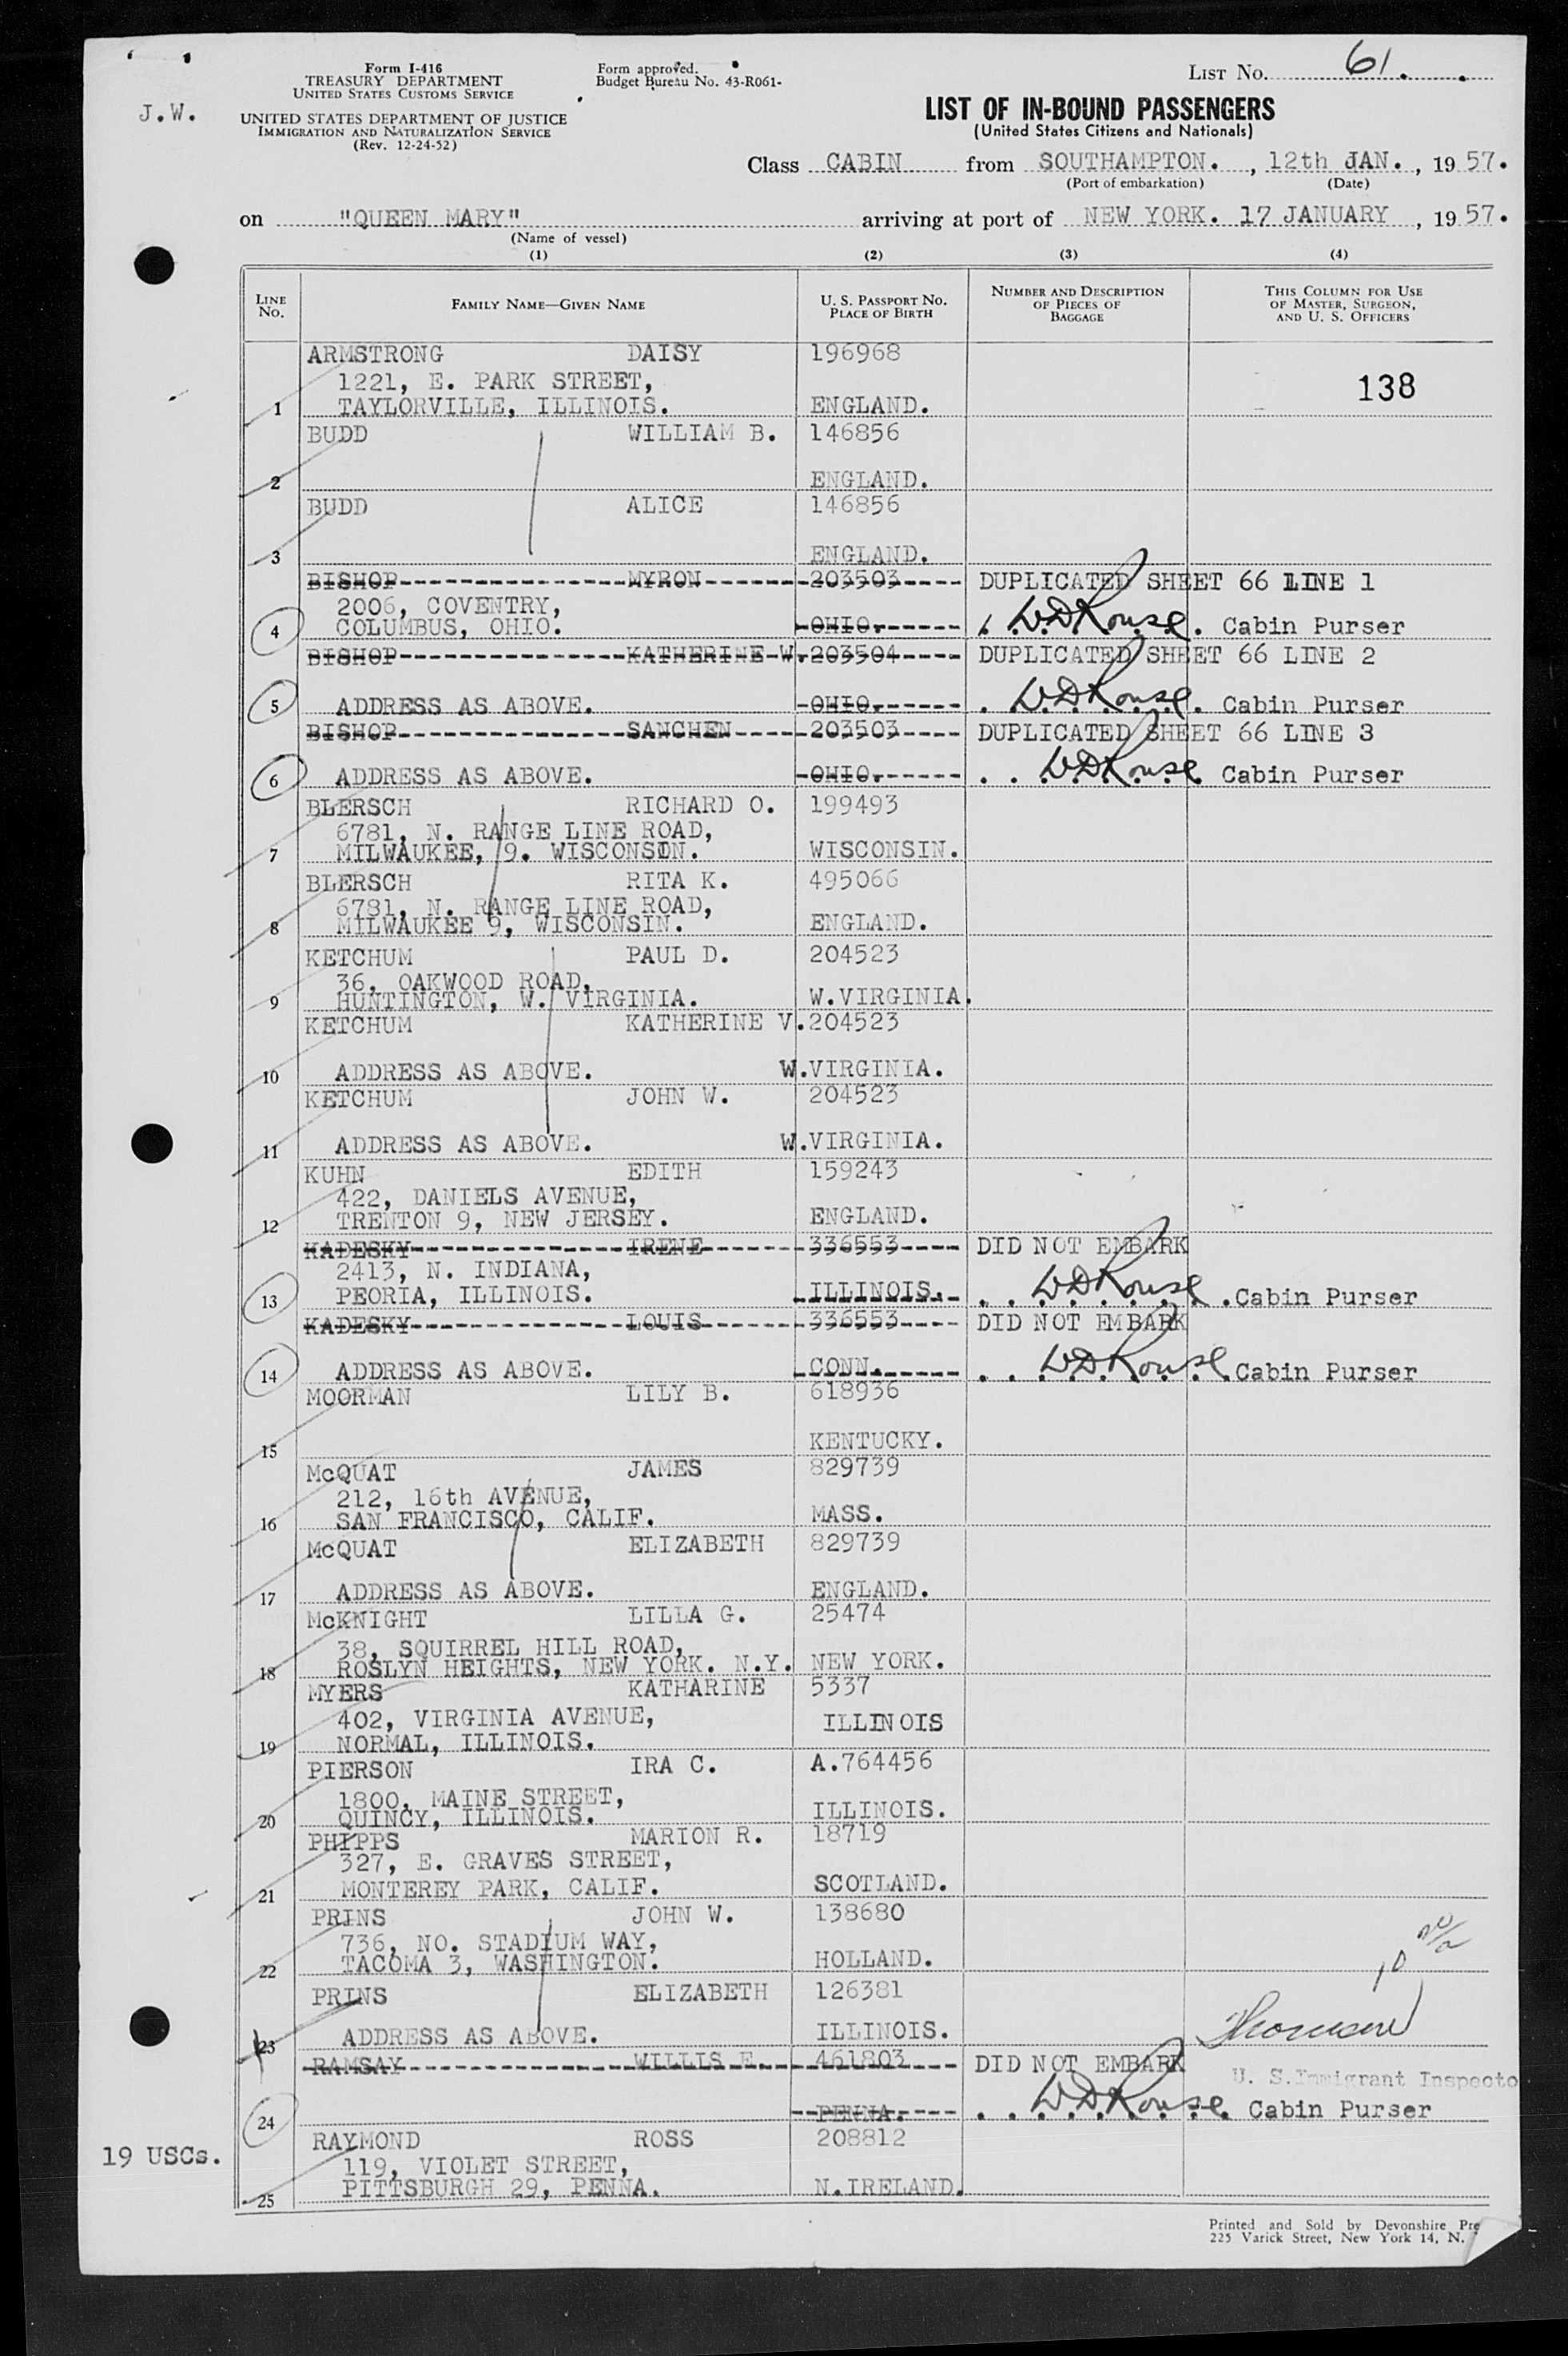 Form I-416
TREASURY DEPARTMENT
UNITED STATES CUSTOMS SERVICE
UNITED STATES DEPARTMENT OF JUSTICE
IMMIGRATION AND NATURALIZATION SERVICE
(Rev. 12-24-52)
J.W.
Form approved.
Budget Bureau No. 43-R061-
LIST NO. 61.
LIST OF IN-BOUND PASSENGERS
(United States Citizens and Nationals)
Class CABIN from SOUTHAMPTON. , 12th JAN. , 19 57.
(Port of embarkation) (Date)
on "QUEEN MARY" arriving at port of NEW YORK. 17 JANUARY , 19 57.
(Name of vessel)
(1) (2) (3) (4)
LINE NO. FAMILY NAME—GIVEN NAME U. S. PASSPORT NO. PLACE OF BIRTH NUMBER AND DESCRIPTION OF PIECES OF BAGGAGE THIS COLUMN FOR USE OF MASTER, SURGEON, AND U. S. OFFICERS
ARMSTRONG DAISY 196968
1221, E. PARK STREET, 138
1 TAYLORVILLE, ILLINOIS. ENGLAND.
BUDD WILLIAM B. 146856
2 ENGLAND.
BUDD ALICE 146856
3 ENGLAND.
BISHOP MYRON 203503 DUPLICATED SHEET 66 LINE 1
2006, COVENTRY,
4 COLUMBUS, OHIO. OHIO. W.D.Rouse. Cabin Purser
BISHOP KATHERINE W. 203504 DUPLICATED SHEET 66 LINE 2
5 ADDRESS AS ABOVE. OHIO. W.D.Rouse. Cabin Purser
BISHOP SANCHEN 203503 DUPLICATED SHEET 66 LINE 3
6 ADDRESS AS ABOVE. OHIO. W.D.Rouse. Cabin Purser
BLERSCH RICHARD O. 199493
6781, N. RANGE LINE ROAD,
7 MILWAUKEE, 9. WISCONSIN. WISCONSIN.
BLERSCH RITA K. 495066
6781, N. RANGE LINE ROAD,
8 MILWAUKEE 9, WISCONSIN. ENGLAND.
KETCHUM PAUL D. 204523
36, OAKWOOD ROAD,
9 HUNTINGTON, W. VIRGINIA. W.VIRGINIA.
KETCHUM KATHERINE V. 204523
10 ADDRESS AS ABOVE. W.VIRGINIA.
KETCHUM JOHN W. 204523
11 ADDRESS AS ABOVE. W.VIRGINIA.
KUHN EDITH 159243
422, DANIELS AVENUE,
12 TRENTON 9, NEW JERSEY. ENGLAND.
KADESKY IRENE 336553 DID NOT EMBARK
2413, N. INDIANA,
13 PEORIA, ILLINOIS. ILLINOIS. W.D.Rouse. Cabin Purser
KADESKY LOUIS 336553 DID NOT EMBARK
14 ADDRESS AS ABOVE. CONN. W.D.Rouse. Cabin Purser
MOORMAN LILY B. 618936
15 KENTUCKY.
McQUAT JAMES 829739
212, 16th AVENUE,
16 SAN FRANCISCO, CALIF. MASS.
McQUAT ELIZABETH 829739
17 ADDRESS AS ABOVE. ENGLAND.
McKNIGHT LILLA G. 25474
38, SQUIRREL HILL ROAD,
18 ROSLYN HEIGHTS, NEW YORK. N.Y. NEW YORK.
MYERS KATHARINE 5337
402, VIRGINIA AVENUE, ILLINOIS
19 NORMAL, ILLINOIS.
PIERSON IRA C. A.764456
1800, MAINE STREET,
20 QUINCY, ILLINOIS. ILLINOIS.
PHIPPS MARION R. 18719
327, E. GRAVES STREET,
21 MONTEREY PARK, CALIF. SCOTLAND.
PRINS JOHN W. 138680
736, NO. STADIUM WAY,
22 TACOMA 3, WASHINGTON. HOLLAND.
PRINS ELIZABETH 126381
23 ADDRESS AS ABOVE. ILLINOIS.
RAMSAY WILLIS E. 461803 DID NOT EMBARK
U. S. Immigrant Inspecto
24 PENNA. W.D.Rouse. Cabin Purser
RAYMOND ROSS 208812
19 USCs.
119, VIOLET STREET,
25 PITTSBURGH 29, PENNA. N.IRELAND.
Printed and Sold by Devonshire Pre
225 Varick Street, New York 14, N.